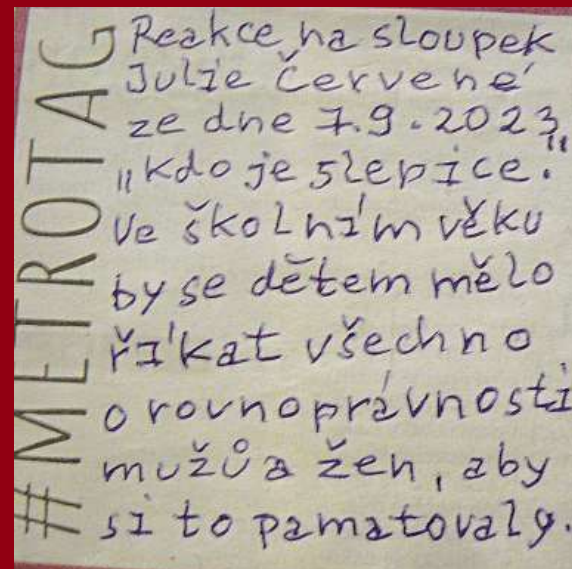 #METROTAG
Reakce na sloupek
Julie Červené
ze dne 7.9.2023,
"kdo je slepice."
Ve školním věku
by se dětem mělo
říkat všechno
o rovnoprávnosti
mužů a žen, aby
si to pamatovaly.